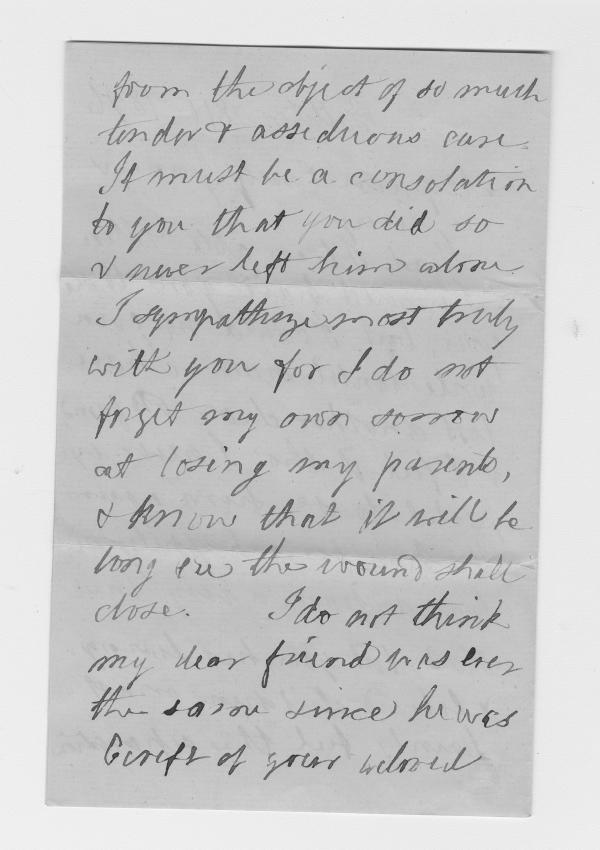 from the object of so much
tender & assiduous care.
It must be a consolation
to you that you did so
& never left him alone.
I sympathize most truly
with you for I do not
forget my own sorrow
at losing my parents,
& know that it will be
long ere the wound shall
close. I do not think
my dear friend was ever
the same since he was
bereft of your beloved